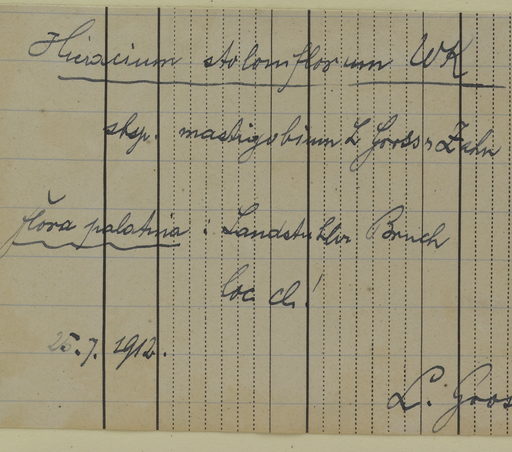 Hieracium stoloniflorum WK
sbsp. mastigobium L Gross & Zahn
flora palatina : Landstuhler Bruch
loc. cl.!
25.7. 1912.
L. Gross